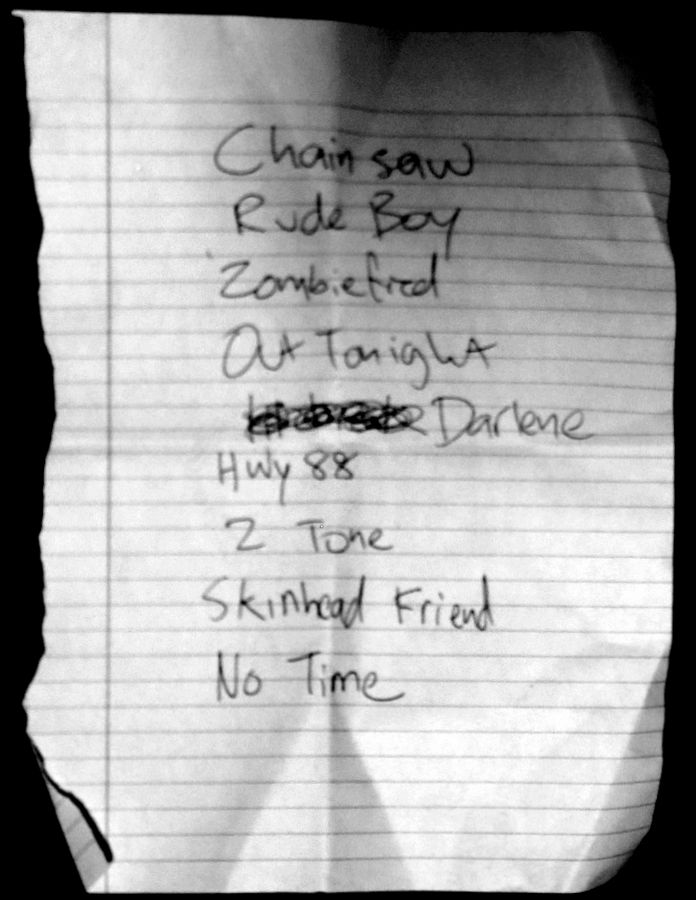 Chainsaw
Rude Boy
Zombiefred
Out Tonight
Darlene
Hwy 88
2 Tone
Skinhead Friend
No Time